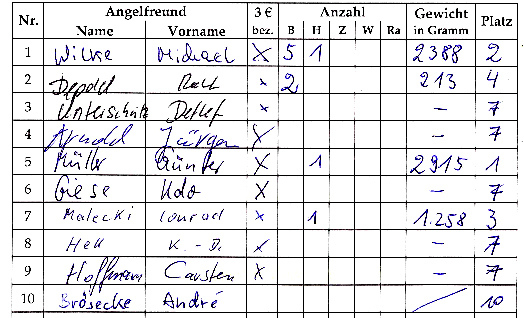 Nr. Angelfreund 3 € Anzahl Gewicht Platz
Name Vorname bez. B H Z W Ra in Gramm
1 Wilke Michael X 5 1 2388 2
2 Depold x 2 213 4
3 Unterschütz Detlef x – 7
4 Arnold Jürgen X – 7
5 Müller Günter X 1 2915 1
6 Giese Udo X – 7
7 Malecki Conrad x 1 1.258 3
8 Hell K.-D. x – 7
9 Hoffmann Carsten X – 7
10 Brösecke André / 10